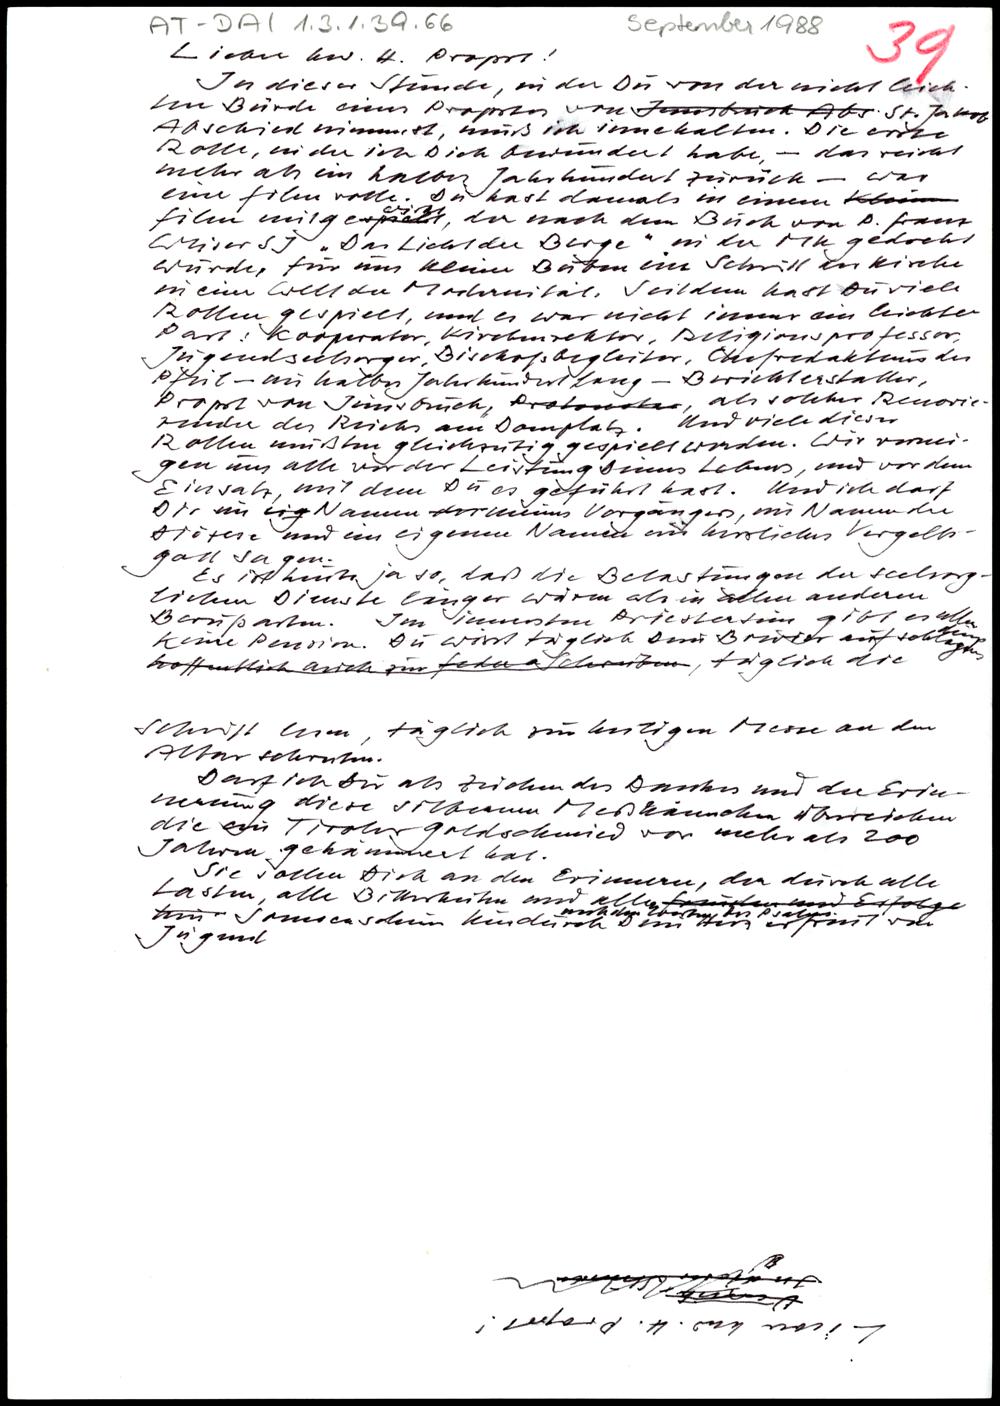 AT-DAI 1.3.1.39.66 September 1988
39
Lieber hw. H. Propst!
In dieser Stunde, in der Du von der nicht leich-
ten Bürde eines Propstes von Innsbruck Abs St. Jakob
Abschied nimmst, muß ich innehalten. Die erste
Rolle, in der ich Dich bewundert habe, – das reicht
mehr als ein halbes Jahrhundert zurück – war
eine Filmrolle. Du hast damals in einem Kleinen
Film mitgespielt, der nach dem Buch von P. Franz
Weiser SJ „Das Licht der Berge" in der MK gedreht
wurde, für uns kleine Buben ein Schritt der Kirche
in eine Welt der Modernität. Seitdem hast Du viele
Rollen gespielt, und es war nicht immer ein leichter
Part: Kooperator, Kirchenrektor, Religionsprofessor,
Jugendseelsorger, Bischofsbegleiter, Chefredakteur des
Pfeil – ein halbes Jahrhundert lang – Berichterstatter,
Propst von Innsbruck, Protonotar, als solcher Renovie-
render des Reichs am Domplatz. Und viele dieser
Rollen mußten gleichzeitig gespielt werden. Wir vernei-
gen uns alle vor der Leistung Deines Lebens, und vor dem
Einsatz, mit dem Du es geführt hast. Und ich darf
Dir im eig Namen meines Vorgängers, im Namen der
Diözese und im eigenen Namen ein herzliches Vergelts-
gott sagen.
Es ist heute ja so, daß die Belastungen der seelsorg-
lichen Dienste länger währen als in allen anderen
Berufsarten. Im innersten Priestersein gibt es allerdings
keine Pension. Du wirst täglich Dein Brevier aufschlagen
hoffentlich auch zur Feder Schreiben, täglich die
Schrift lesen, täglich zur heiligen Messe an den
Altar schreiten.
Darf ich Dir als Zeichen des Dankes und der Erin-
nerung diese silbernen Meßkännchen überreichen
die ein Tiroler Goldschmied vor mehr als 200
Jahren gehämmert hat.
Sie sollen Dich an den Erinnern, der durch alle
Lasten, alle Bitterkeiten und alle Freuden und Erfolge
mit den Worten des Psalms
Sonnenschein hindurch Dein Herz erfreut von
Jugend
Lieber hw. H. Propst!